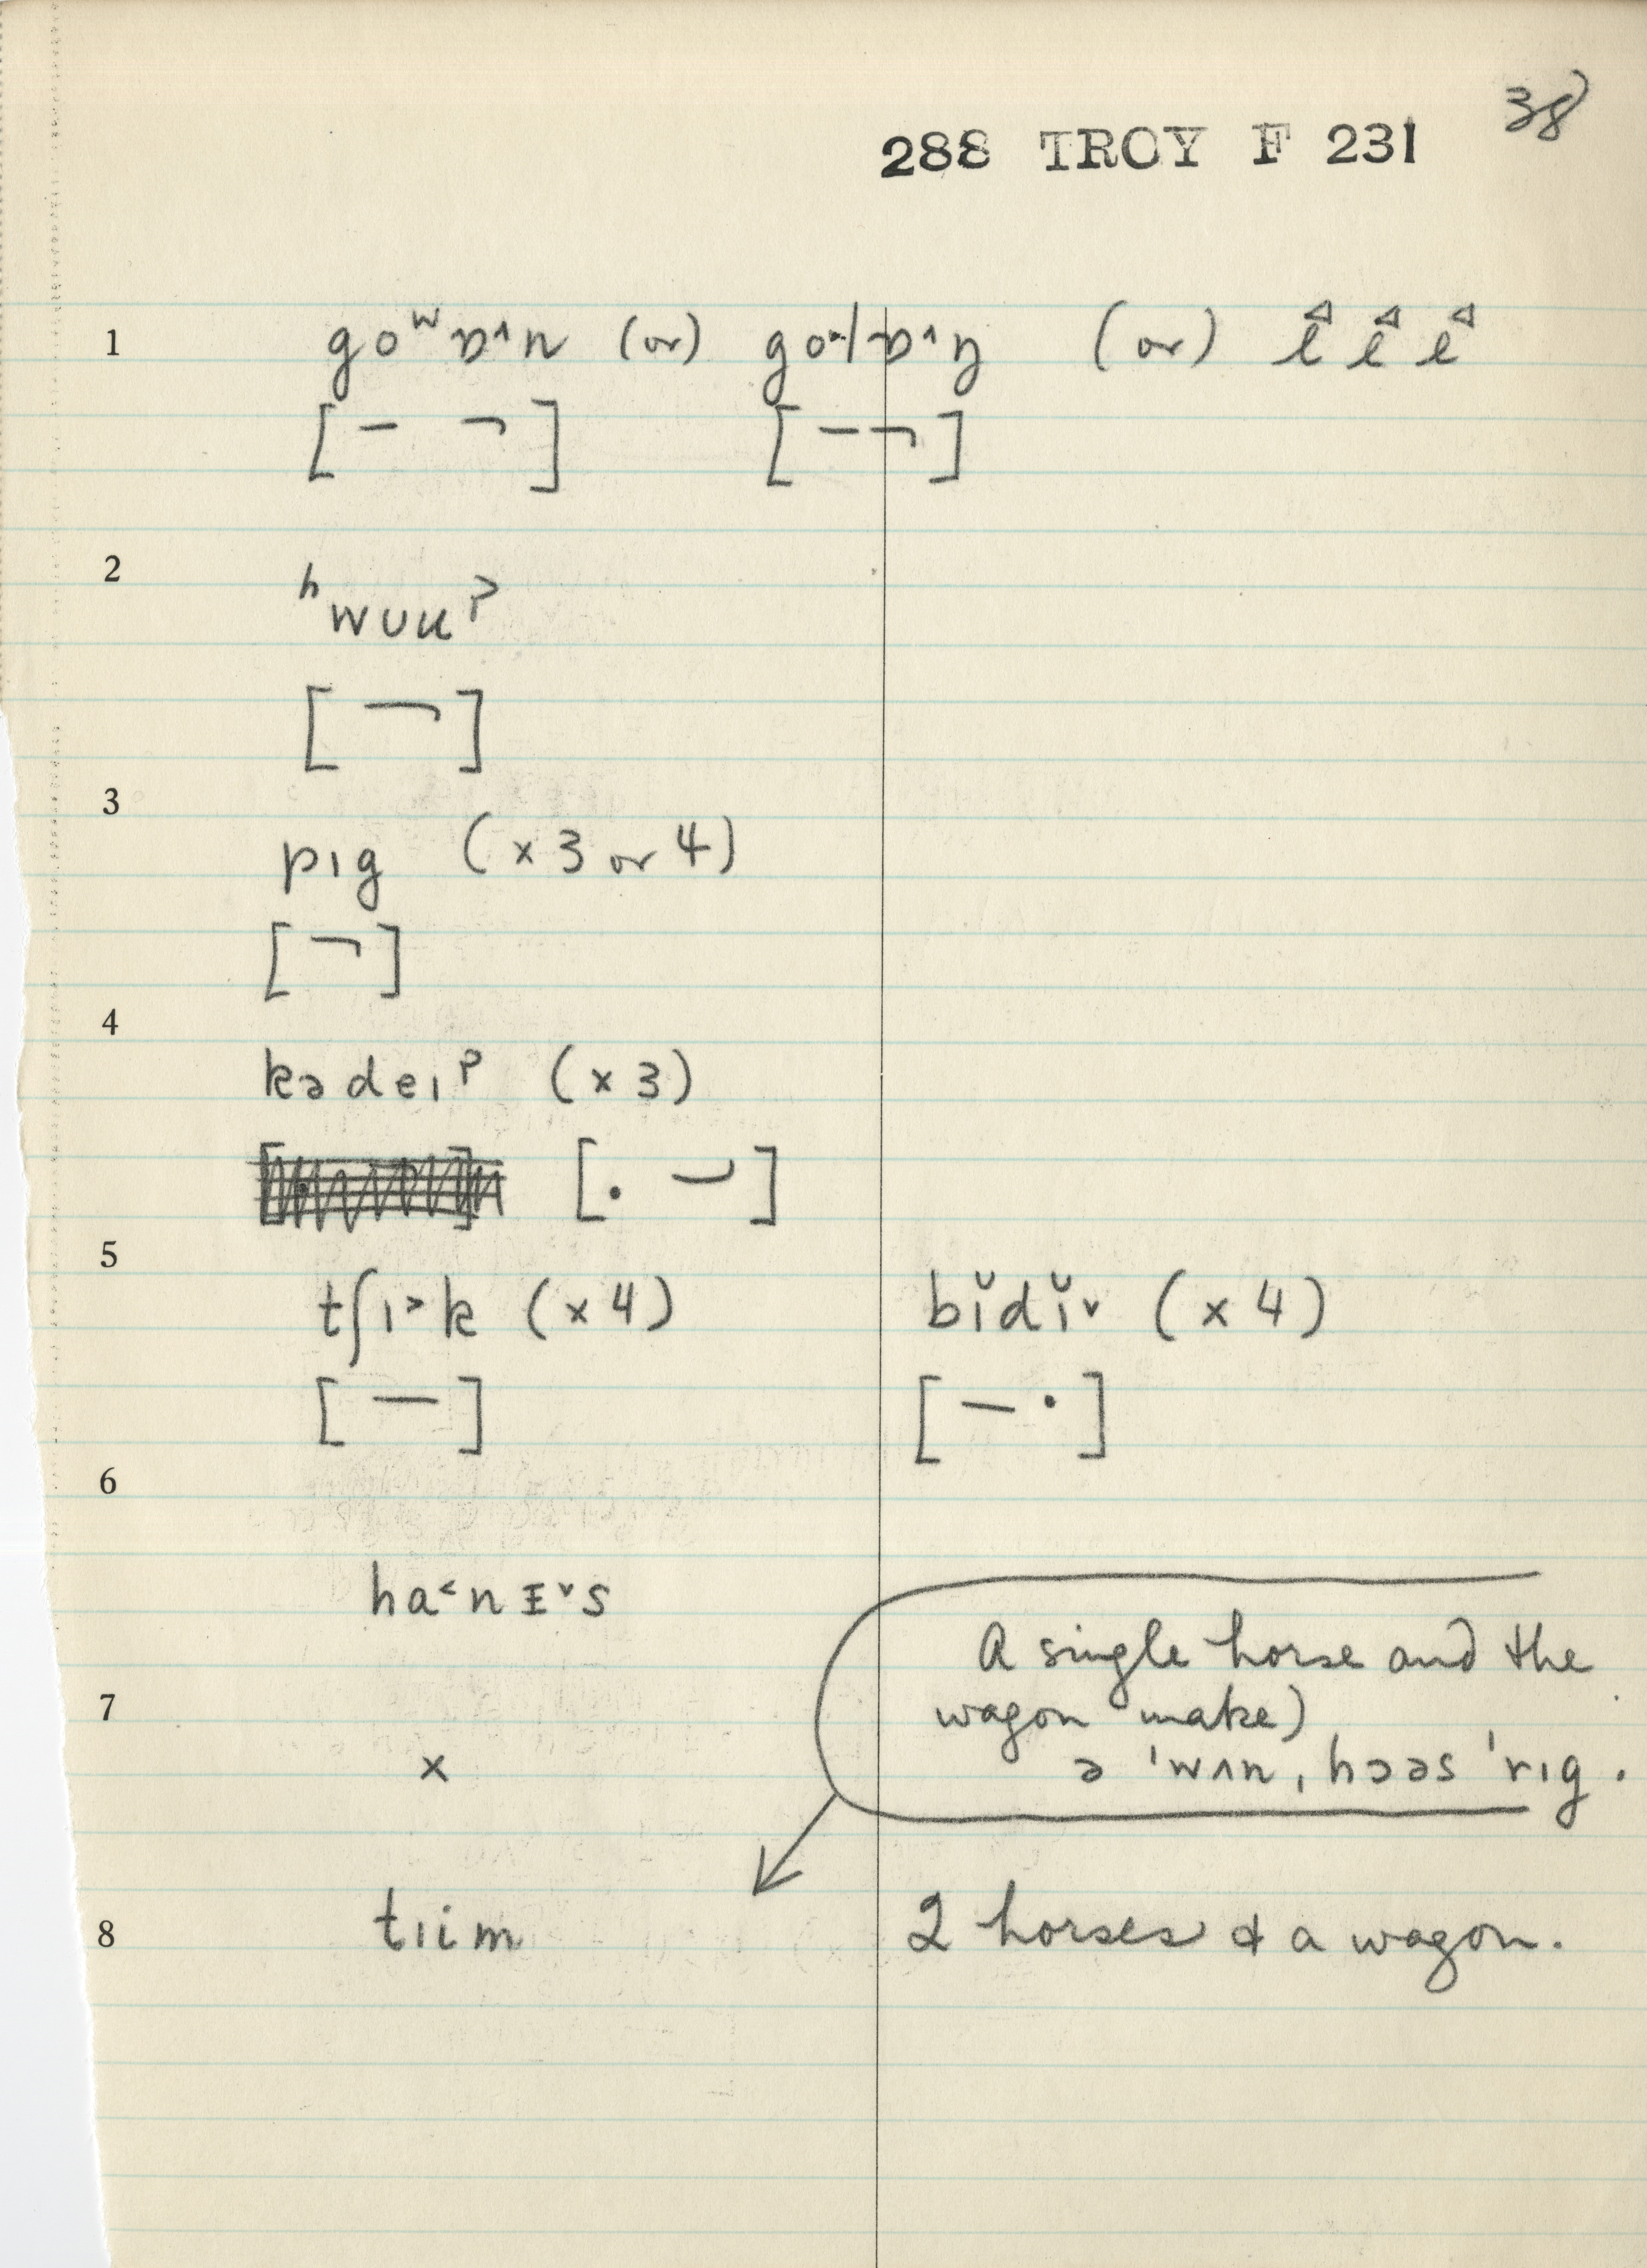 38
288 TROY F 231
1 goʷɒ˄n (or) go˔|ɒ˄ŋ (or)
2 ʰwʊuˀ
3 pɪg (×3 or 4)
4 kədeɪˀ (×3)
[. ]
5 tʃɪ˃k (×4) bĭdĭ˅ (×4)
6
ha˂nɪ˅s
A single horse and the
7 wagon make)
× ə ˈwʌn ˌhɔəs ˈrɪg.
8 tɪim 2 horses & a wagon.